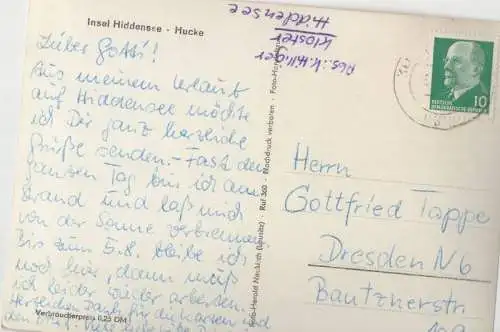 Insel Hiddensee - Hucke
Abs. V. Hilliger
Kloster
Hiddensee
Lieber Gottf.!
Aus meinem Urlaub
auf Hiddensee möchte
ich Dir ganz herzliche
Grüße senden. - Fast den
ganzen Tag bin ich am
Strand und laß mich
von der Sonne verbrennen.
Bis zum 5.8. bleibe ich
noch hier, dann muß
ich leider wieder arbeiten.
Herzlichen Dank für die Karten und
den Brief
Verbraucherpreis 0,25 DM
Foto-Harold Neukirch (Lausitz) · Ruf 360 · Nachdruck verboten
10
DEUTSCHE
DEMOKRATISCHE REPUBLIK
Herrn
Gottfried Tappe
Dresden N6
Bautznerstr.